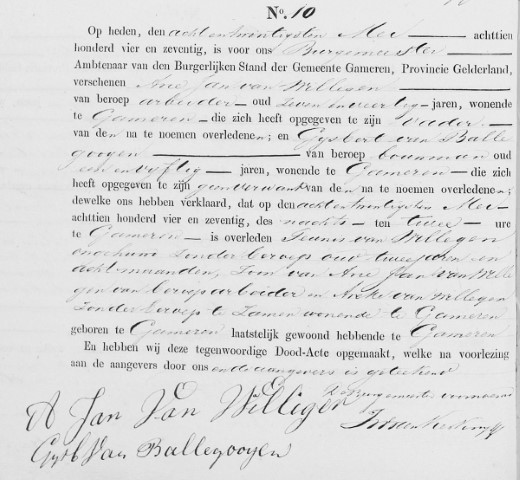 No. 10
Op heden, den acht en twintigsten Mei achttien
honderd vier en zeventig, is voor ons Burgemeester
Ambtenaar van den Burgerlijken Stand der Gemeente Gameren, Provincie Gelderland,
verschenen Arie Jan van Willegen
van beroep arbeider oud zeven en veertig jaren, wonende
te Gameren die zich heeft opgegeven te zijn vader
van den na te noemen overledenen; en Gysbert van Balle
gooyen van beroep bouwman oud
een en vyftig jaren, wonende te Gameren die zich
heeft opgegeven te zijn geenverwant van den na te noemen overledenen;
dewelke ons hebben verklaard, dat op den acht en twintigsten Mei
achttien honderd vier en zeventig, des nachts ten twee ure
te Gameren is overleden Teunis van Willegen
ongehuwd zonder beroep oud twee jaren en
acht maanden, Zoon van Arie Jan van Wille
gen van beroep arbeider en van Willegen
zonder beroep te zamen wonende te Gameren
geboren te Gameren laatstelijk gewoond hebbende te Gameren
En hebben wij deze tegenwoordige Dood-Acte opgemaakt, welke na voorlezing
aan de aangevers door ons en de aangevers is geteekend
De Burgemeester voornoemd
A Jan Van Willigen
Gysb Van Ballegooyen